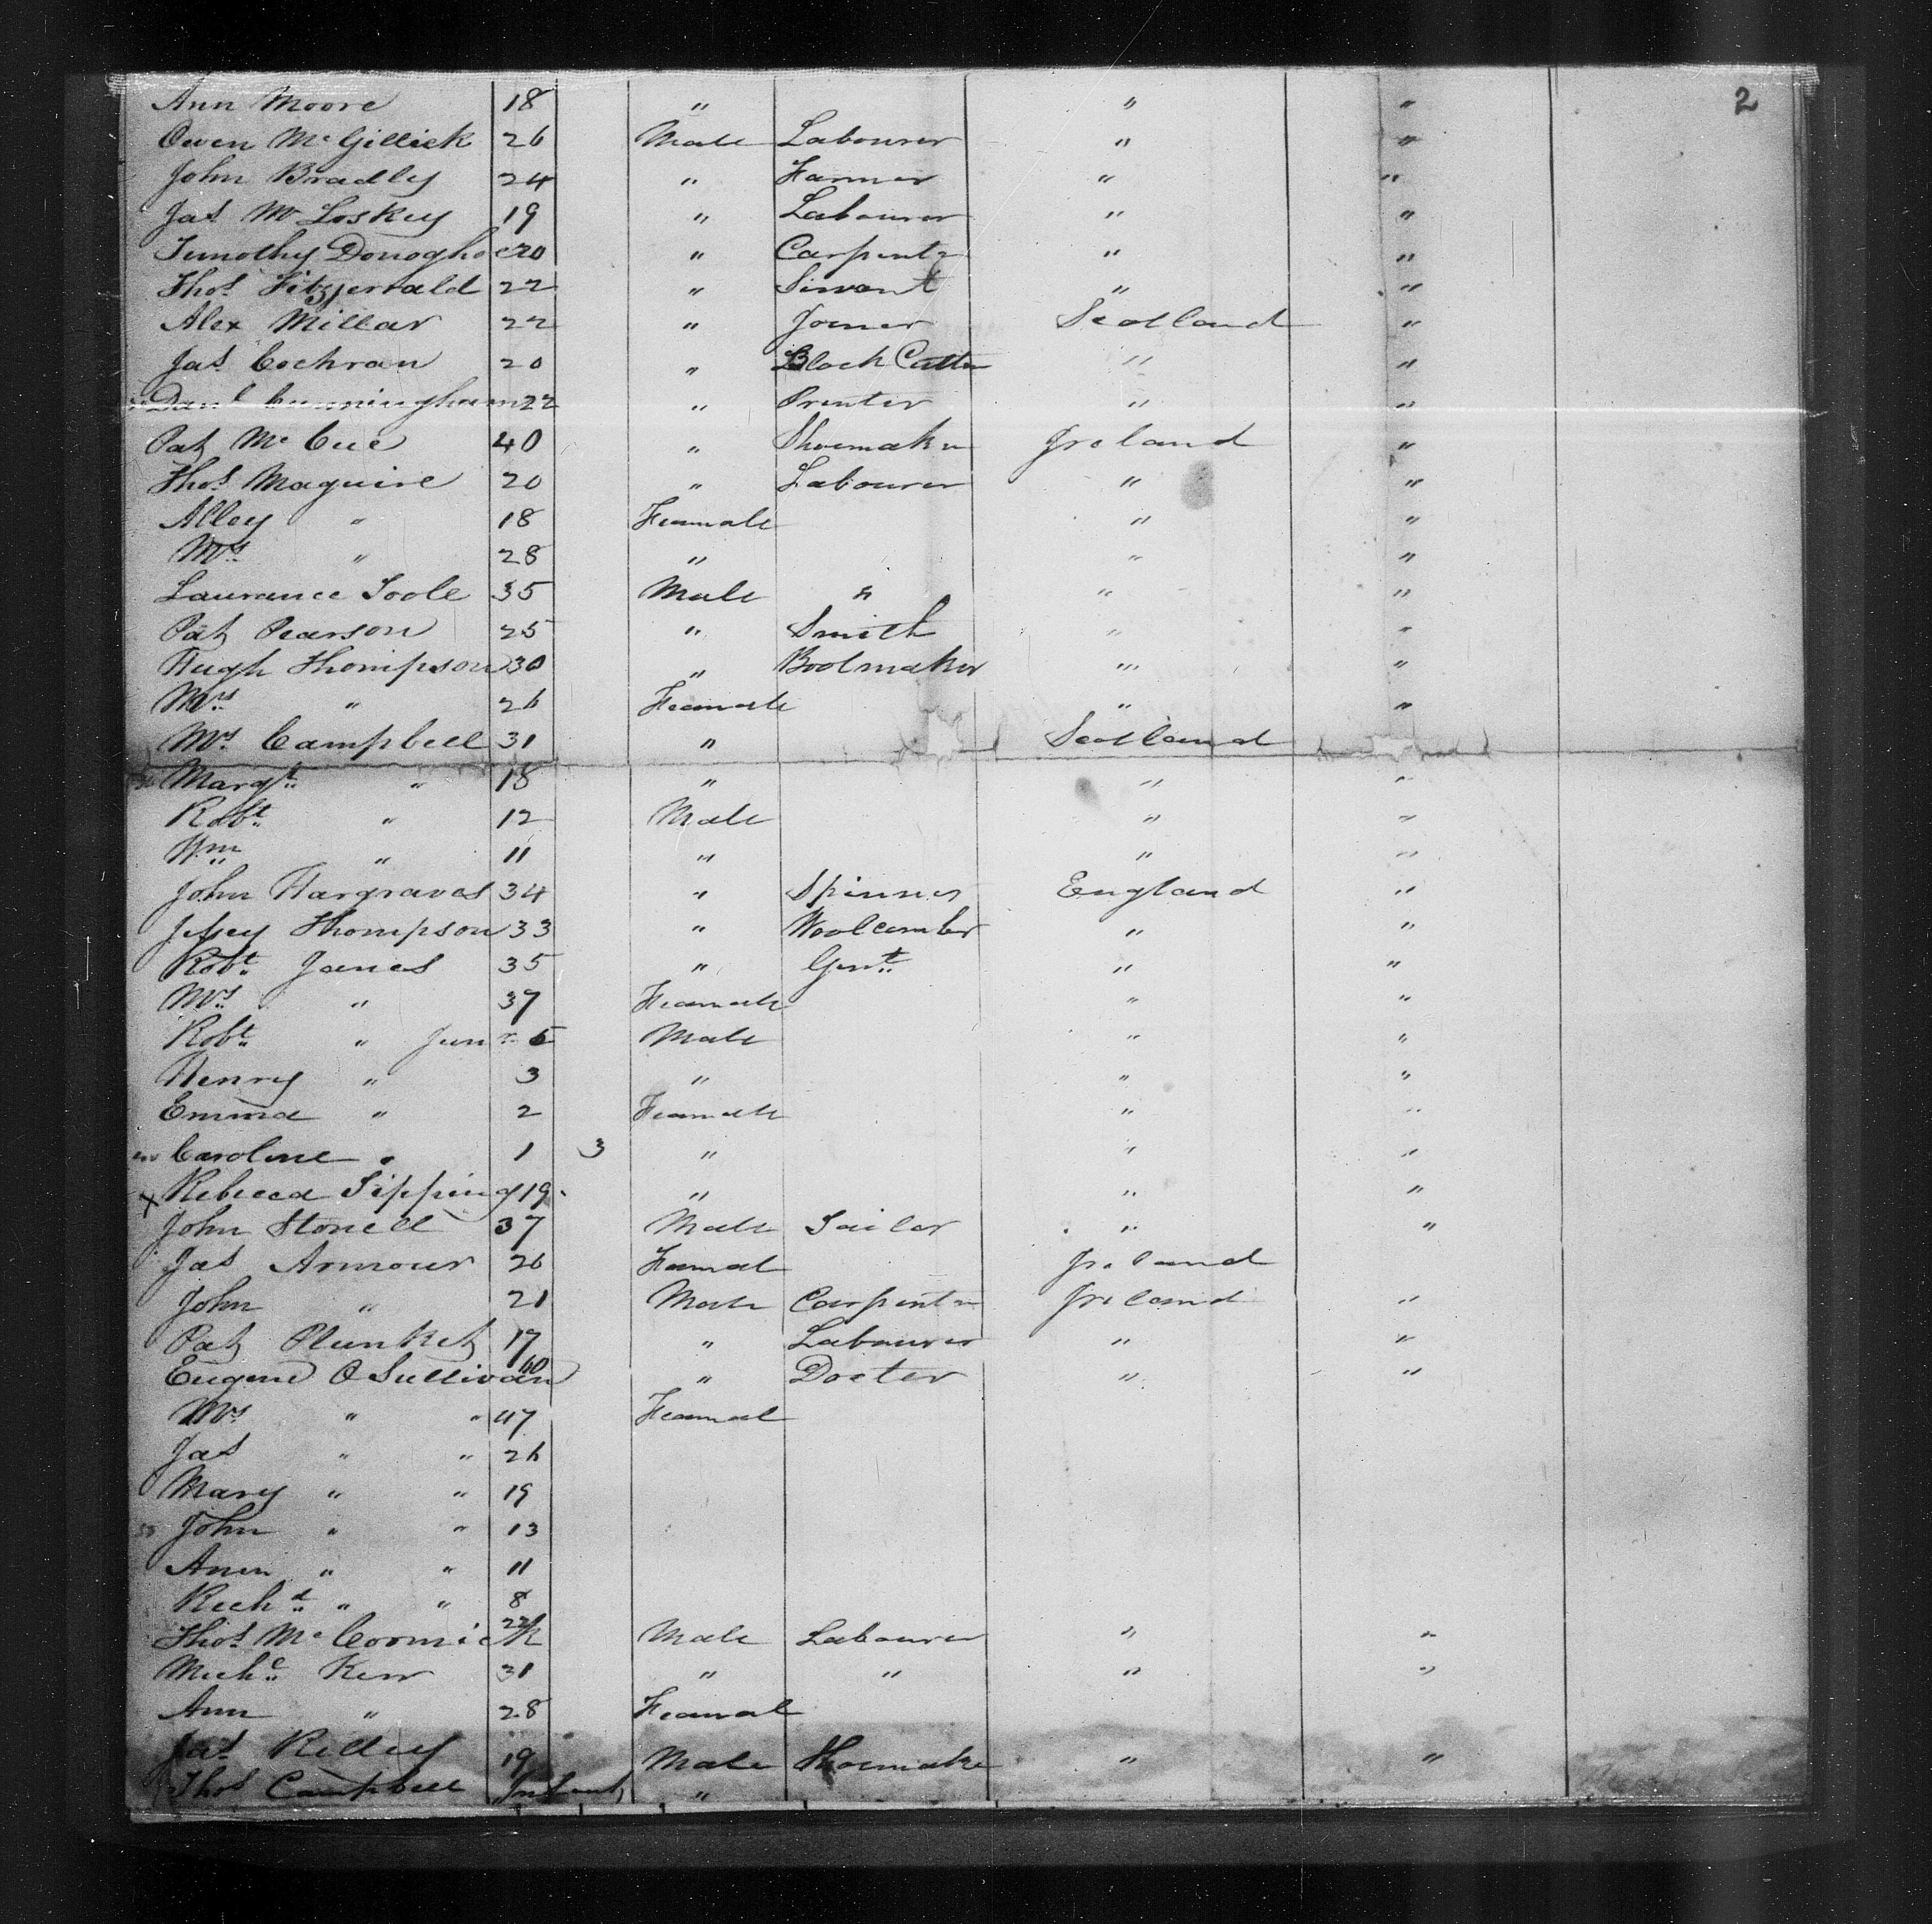 2
Ann Moore 18 " " "
Owen Mc Gillick 26 Male Labourer " "
John Bradley 24 " Farmer " "
Jas Mc Loskey 19 " Labourer " "
Timothy Donoghoe 20 " Carpentr " "
Thos Fitzgerrald 22 " Sirvant " "
Alex Millar 22 " Joiner Scotland "
Jas Cochran 20 " Block Cutter " "
Danl Cunningham 22 " Printer " "
Pat Mc Cue 40 " Shoemakr Ireland "
Thos Maguire 20 " Labourer " "
Alley " 18 Feamale " "
Mrs " 28 " " "
Laurance Toole 35 Male " " "
Pat Pearson 25 " Smith " "
Hugh Thompson 30 " Bootmaker " "
Mrs " 26 Feamale " "
Mrs Campbell 31 " Scotland
Margt " 18 " " "
Robt " 12 Male " "
Wm " 11 " " "
John Hargraves 34 " Spinner England "
Thompson 33 " Woolcomber " "
Robt Janes 35 " Gent " "
Mrs " 37 Feamale " "
Robt " Junr 5 Male " "
Henry " 3 " " "
Emma " 2 Feamale " "
Caroline " 1 3 " " "
x Rebecca Tipping 19 " " "
John Stonell 37 Male Tailor " "
Jas Armour 20 Feamal Ireland
John " 21 Male Carpentr Ireland "
Pat Plunket 17 " Labourer " "
Eugene O Sullivan 40 " Docter " "
Mrs " " 47 Feamal
Jas " " 26
Mary " " 19
John " " 13
Ann " " 11
Richd " " 8
Thos Mc Cormick 22 Male Labourer " "
Michl Kerr 31 " " " "
Ann " 28 Feamal
Jas Kelley 19 Male Shoemake " "
Thos Campbell Infant "